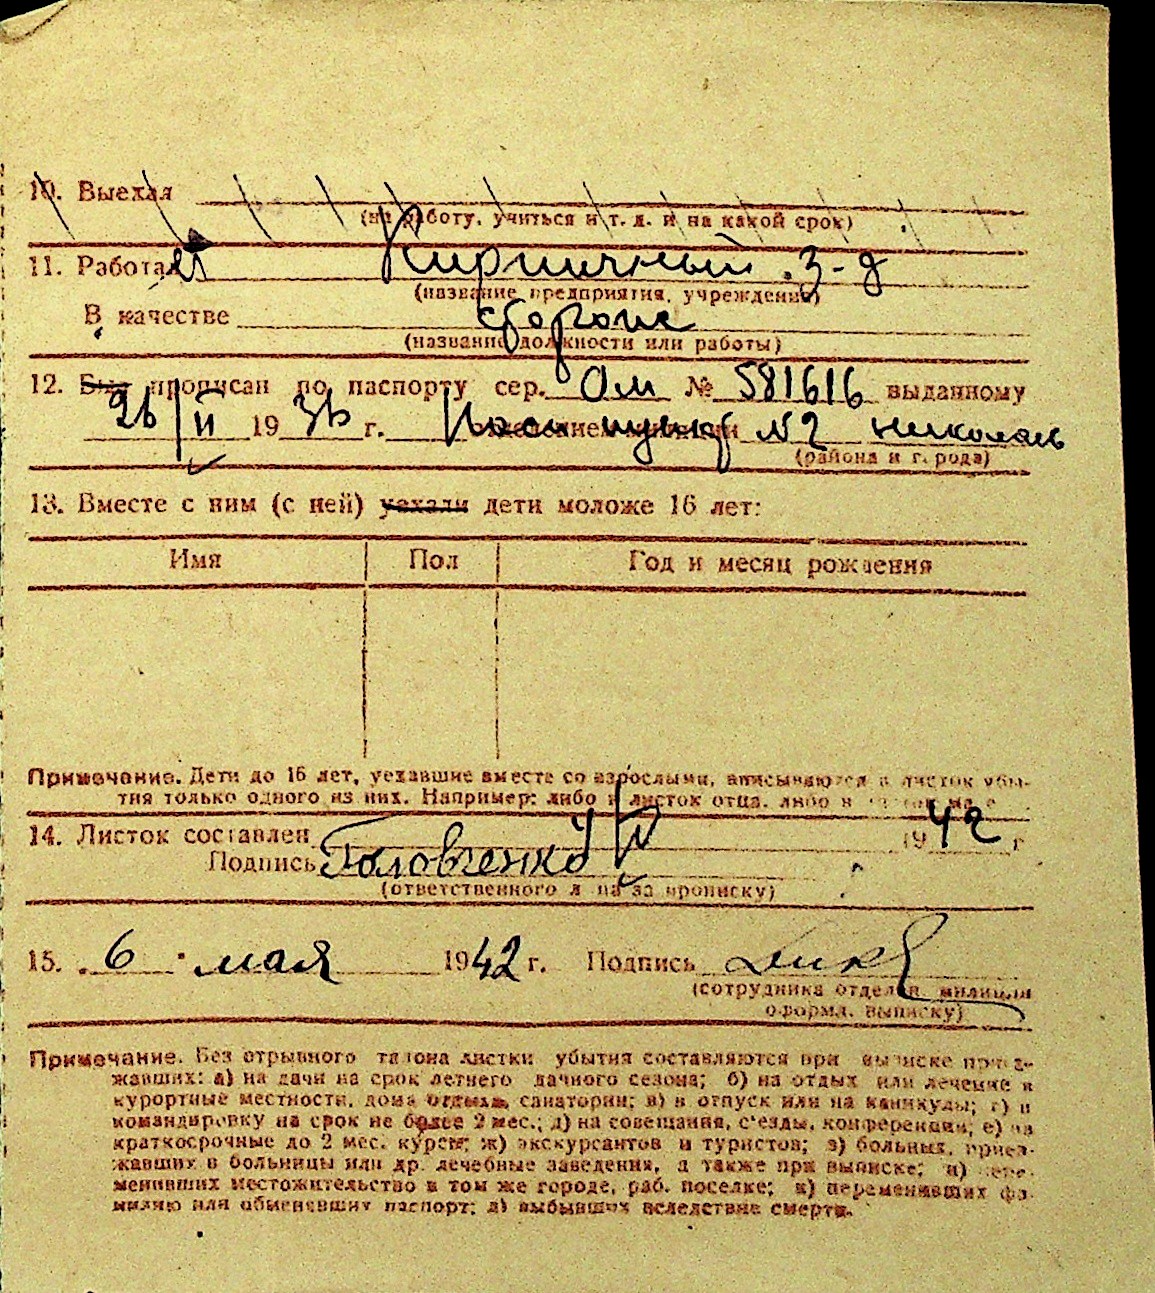 10. Выехал
(на работу, учиться и т. д. и на какой срок)
11. Работал Кирпичный з-д
(название предприятия, учреждения)
В качестве
(название должности или работы)
12. Был прописан по паспорту сер. Ом № 581616 выданному
26/II 1936 г. Пасп пункт №2 Николаев
(района и города)
13. Вместе с ним (с ней) уехали дети моложе 16 лет:
Имя Пол Год и месяц рождения
Примечание. Дети до 16 лет, уехавшие вместе со взрослыми, вписываются в листок убы-
тия только одного из них. Например: либо в листок отца, либо в
14. Листок составлен 4/V 1942 г
Подпись Головченко
(ответственного лица за прописку)
15. 6 мая 1942 г. Подпись
(сотрудника отделен. милиции
оформл. выписку)
Примечание. Без отрывного талона листки убытия составляются при выписке приез-
жавших: а) на дачи на срок летнего дачного сезона; б) на отдых или лечение в
курортные местности, дома отдыха, санатории; в) в отпуск или на каникулы; г) в
командировку на срок не более 2 мес.; д) на совещания, с'езды, конференции; е) на
краткосрочные до 2 мес. курсы; ж) экскурсантов и туристов; з) больных, приез-
жавших в больницы или др. лечебные заведения, а также при выписке; и) пере-
менивших местожительство в том же городе, раб. поселке; к) переменивших фа-
милию или обменявших паспорт; л) выбывших вследствие смерти.